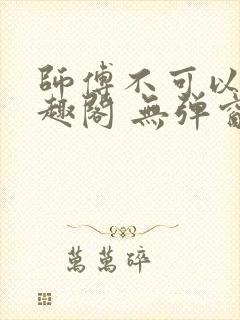 師傅不可以
趣閣 無彈窗
萬萬碎